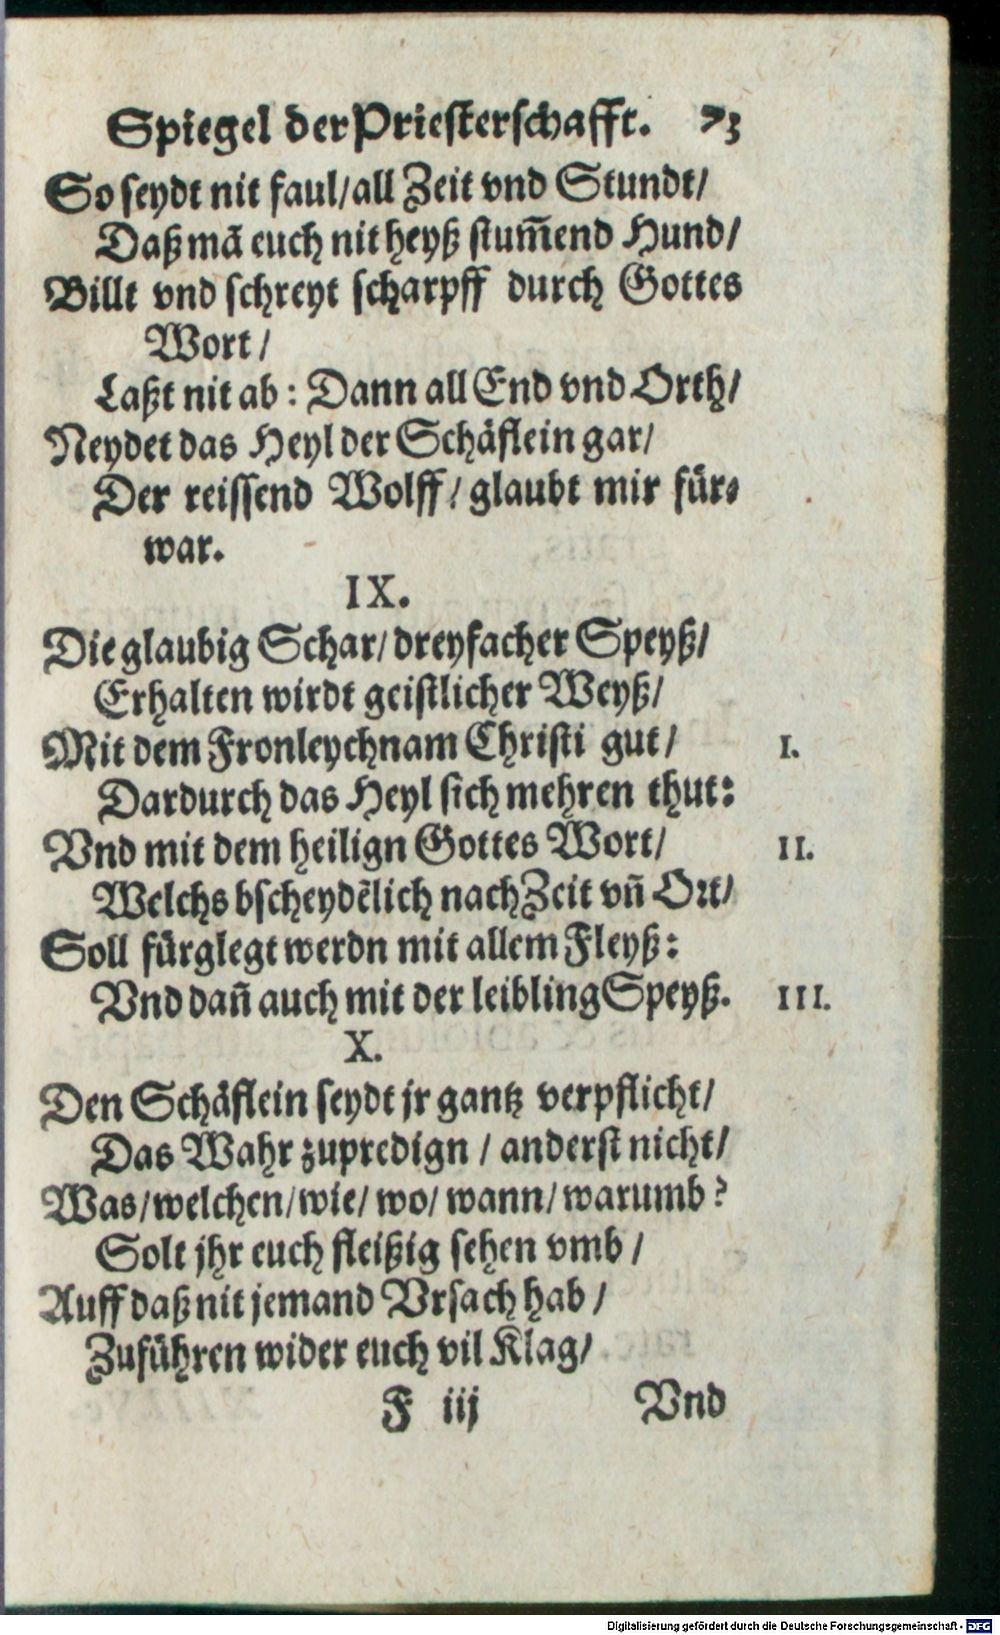 Spiegel der Priesterschafft. 73
So seydt nit faul/all Zeit vnd Stundt/
Daß mã euch nit heyß stum̃end Hund/
Billt vnd schreyt scharpff durch Gottes
Wort/
Laßt nit ab: Dann all End vnd Orth/
Neydet das Heyl der Schäflein gar/
Der reissend Wolff/glaubt mir für-
war.
IX.
Die glaubig Schar/dreyfacher Speyß/
Erhalten wirdt geistlicher Weyß/
Mit dem Fronleychnam Christi gut/ I.
Dardurch das Heyl sich mehren thut:
Vnd mit dem heilign Gottes Wort/ II.
Welchs bscheydẽlich nach Zeit vñ Ort/
Soll fürglegt werdn mit allem Fleyß:
Vnd dañ auch mit der leibling Speyß. III.
X.
Den Schäflein seydt jr gantz verpflicht/
Das Wahr zupredign/anderst nicht/
Was/welchen/wie/wo/wann/warumb?
Solt jhr euch fleißig sehen vmb/
Auff daß nit jemand Vrsach hab/
Zuführen wider euch vil Klag/
F iij Vnd
Digitalisierung gefördert durch die Deutsche Forschungsgemeinschaft - DFG